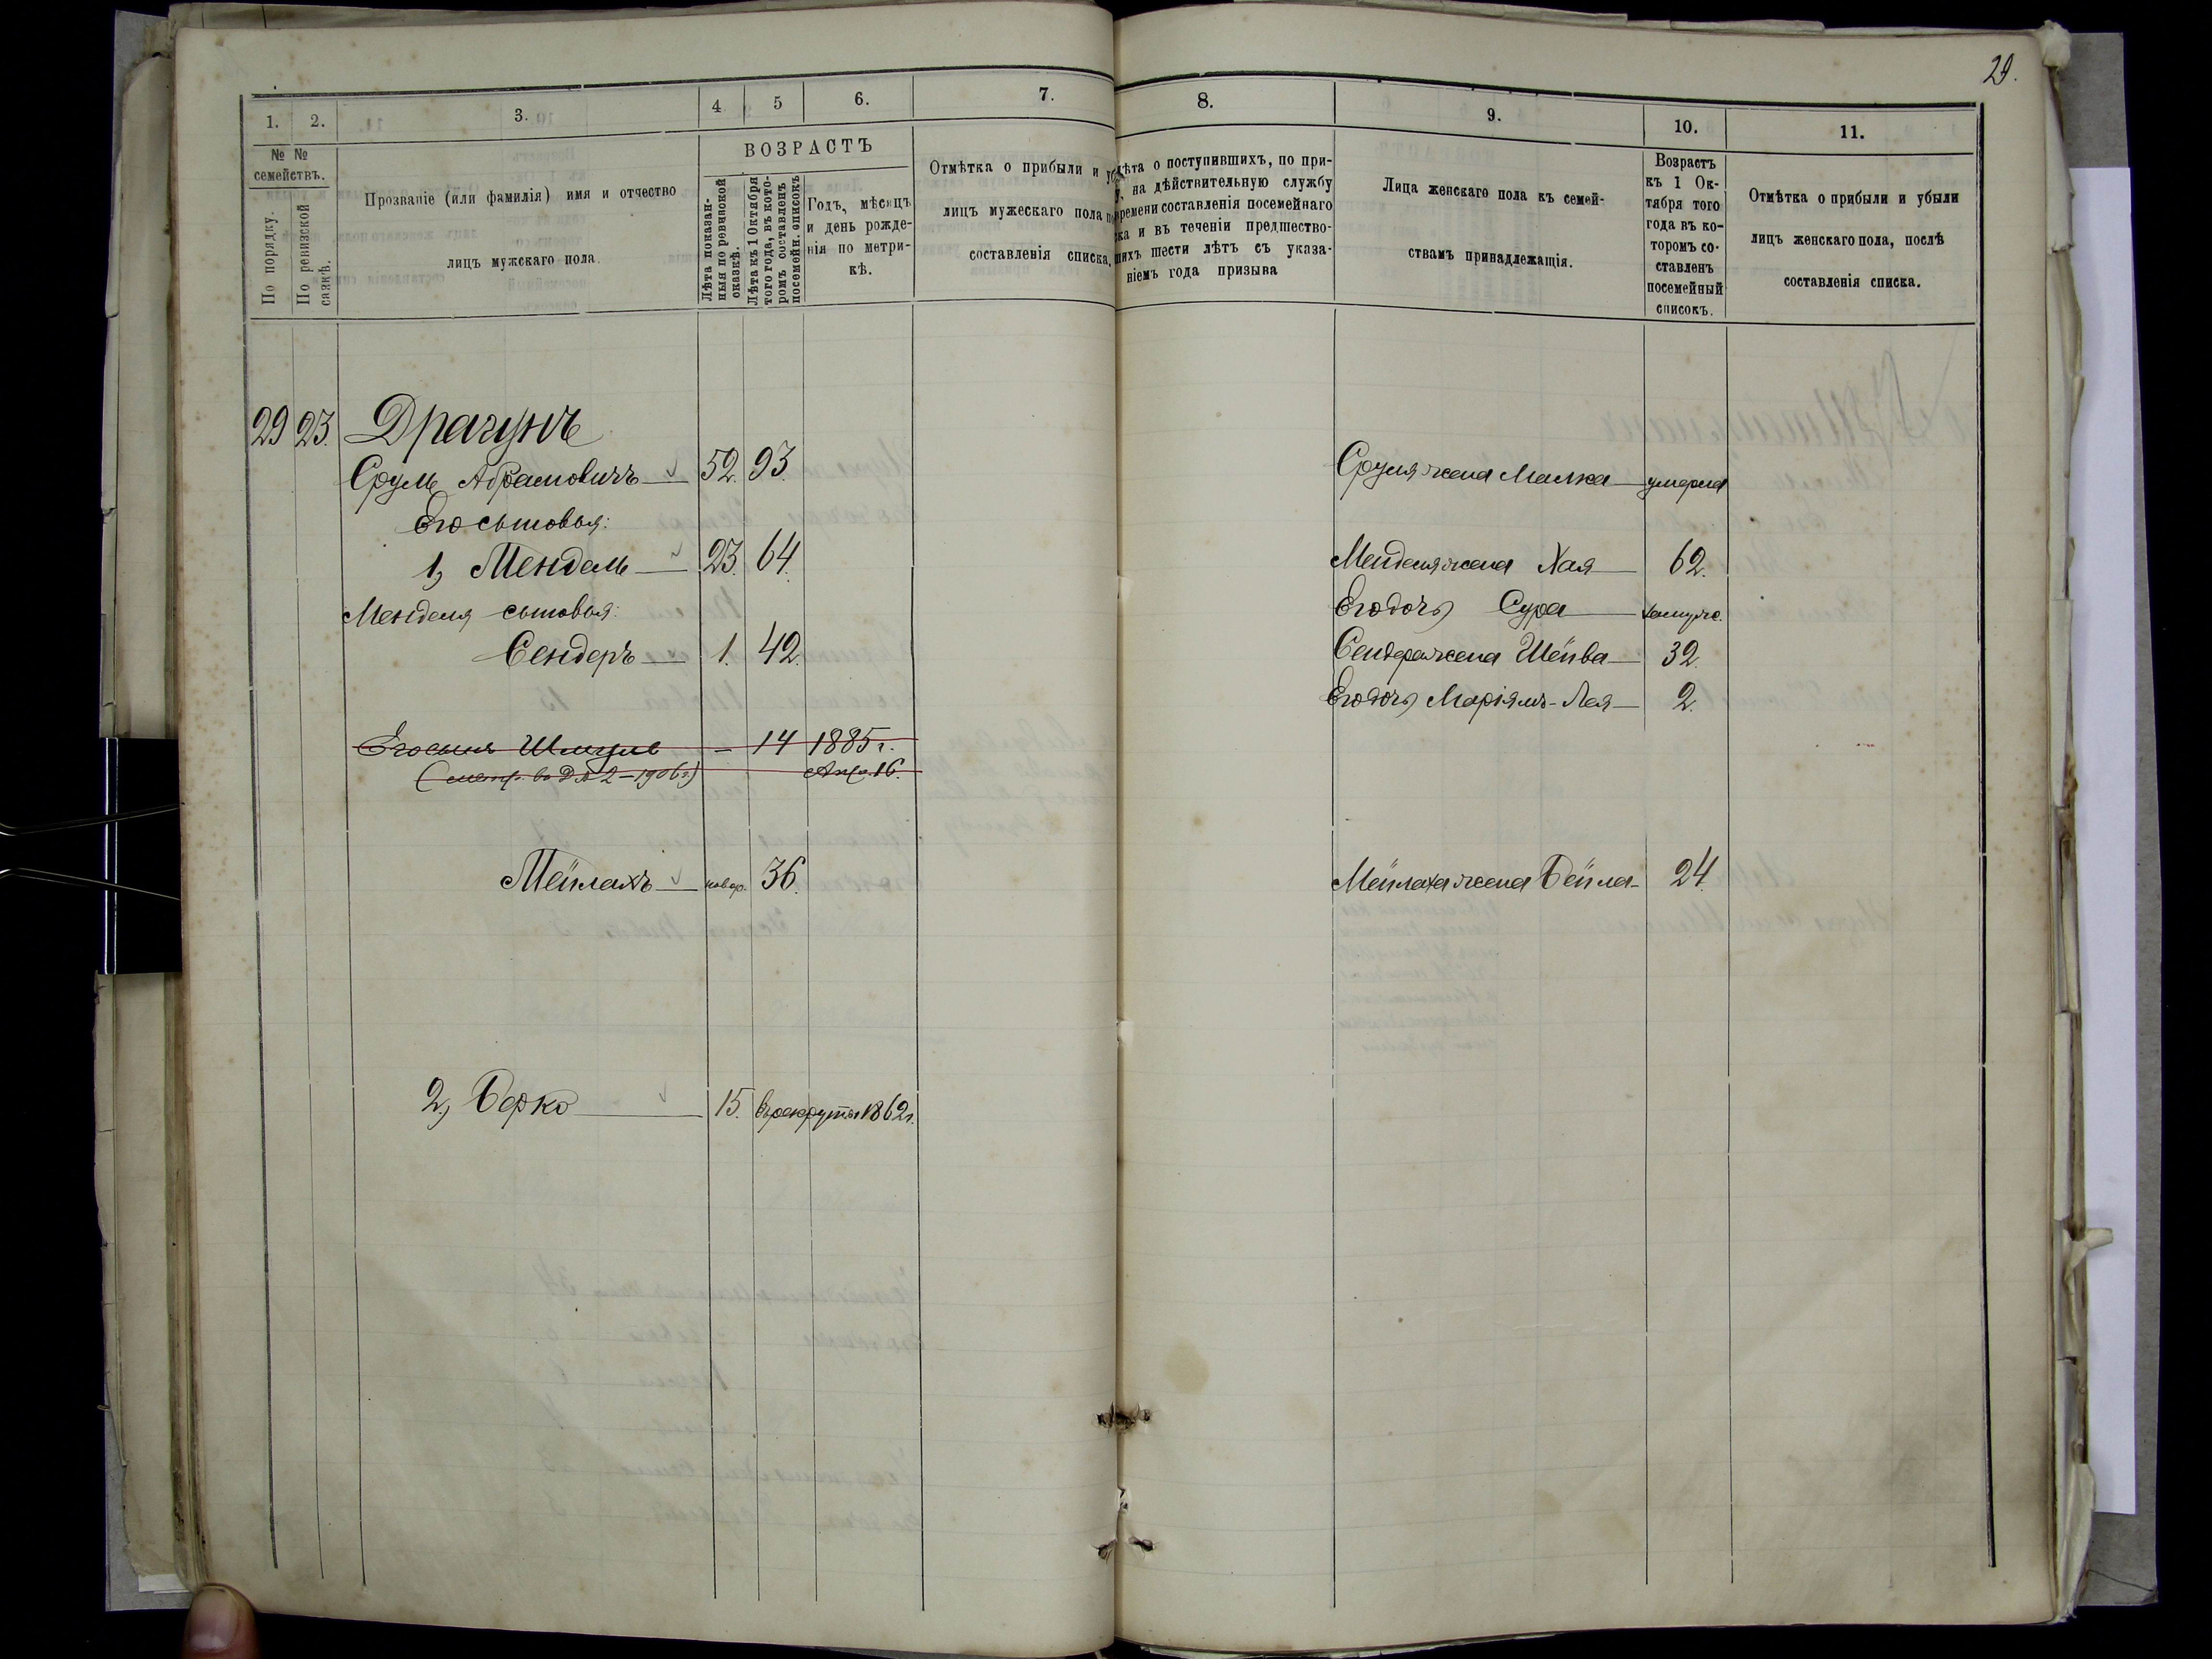 29.
1.
2.
3.
4
5
6.
7.
8.
9.
10.
11.
№ № семействъ.
По порядку.
По ревизской сазкѣ.
Прозваніе (или фамилія) имя и отчество
лицъ мужскаго пола.
ВОЗРАСТЪ
Лѣта показан-
ныя по ревизской
сказкѣ.
Лѣта къ 1 Октября
того года, въ кото-
ромъ составленъ
посемейн. список­ъ
Годъ, мѣсяцъ
и день рожде-
нія по метри-
кѣ.
Отмѣтка о прибыли и
лицъ мужескаго пола
составленія списка,
лѣта о поступившихъ, по при-
на дѣйствительную службу
времени составленія посемейнаго
и въ теченіи предшество-
шихъ шести лѣтъ съ указа-
ніемъ года призыва
Лица женскаго пола къ семей-
ствамъ принадлежащія.
Возрастъ
къ 1 Ок-
тября того
года въ ко-
торомъ со-
ставленъ
посемейный
списокъ.
Отмѣтка о прибыли и убыли
лицъ женскаго пола, послѣ
составленія списка.
29 23. Драгунъ
Сруль Абрамовичъ 52. 93. Сруля жена Малка умерла
Его сыновья:
1, Мендель 23. 64. Менделя жена Хая 62.
Менделя сыновья: Его дочь Сура замуже.
Сендеръ 1. 42. Сендера жена Шейва 32.
Его дочь Маріямъ-Лея 2.
Его сынъ Шмуль - 14 1885 г.
(метр. въ Д № 2-1906 г.) Апр. 16.
Мейлахъ новор. 36. Мейлаха жена Бейла 24.
2, Берко 15. въ рекруты 1862 г.